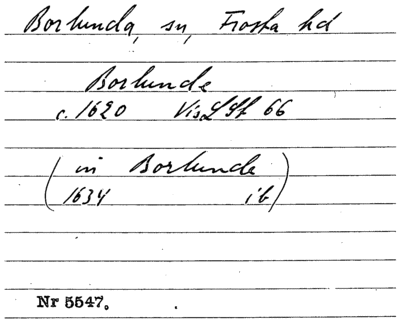 Borlunda, sn, Frosta hd
Borlunde
c. 1620 Vis.LSt 66
(in Borlunde
1634 ib)
Nr 5547.